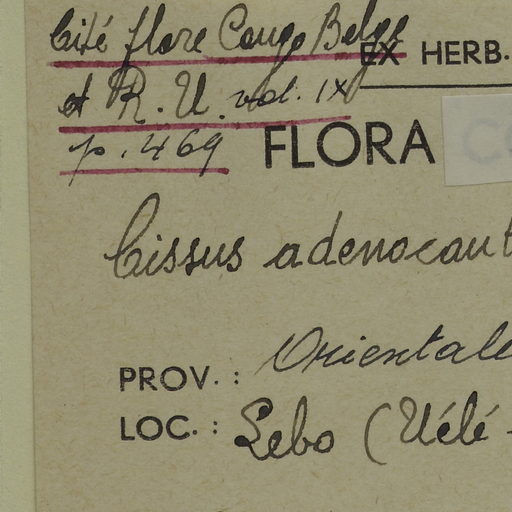 Cité flore Congo Belge
EX HERB.
et R. U. vol. IX
p. 469
FLORA
Cissus adenocau
PROV. : Orientale
LOC. : Lebo (Uélé-